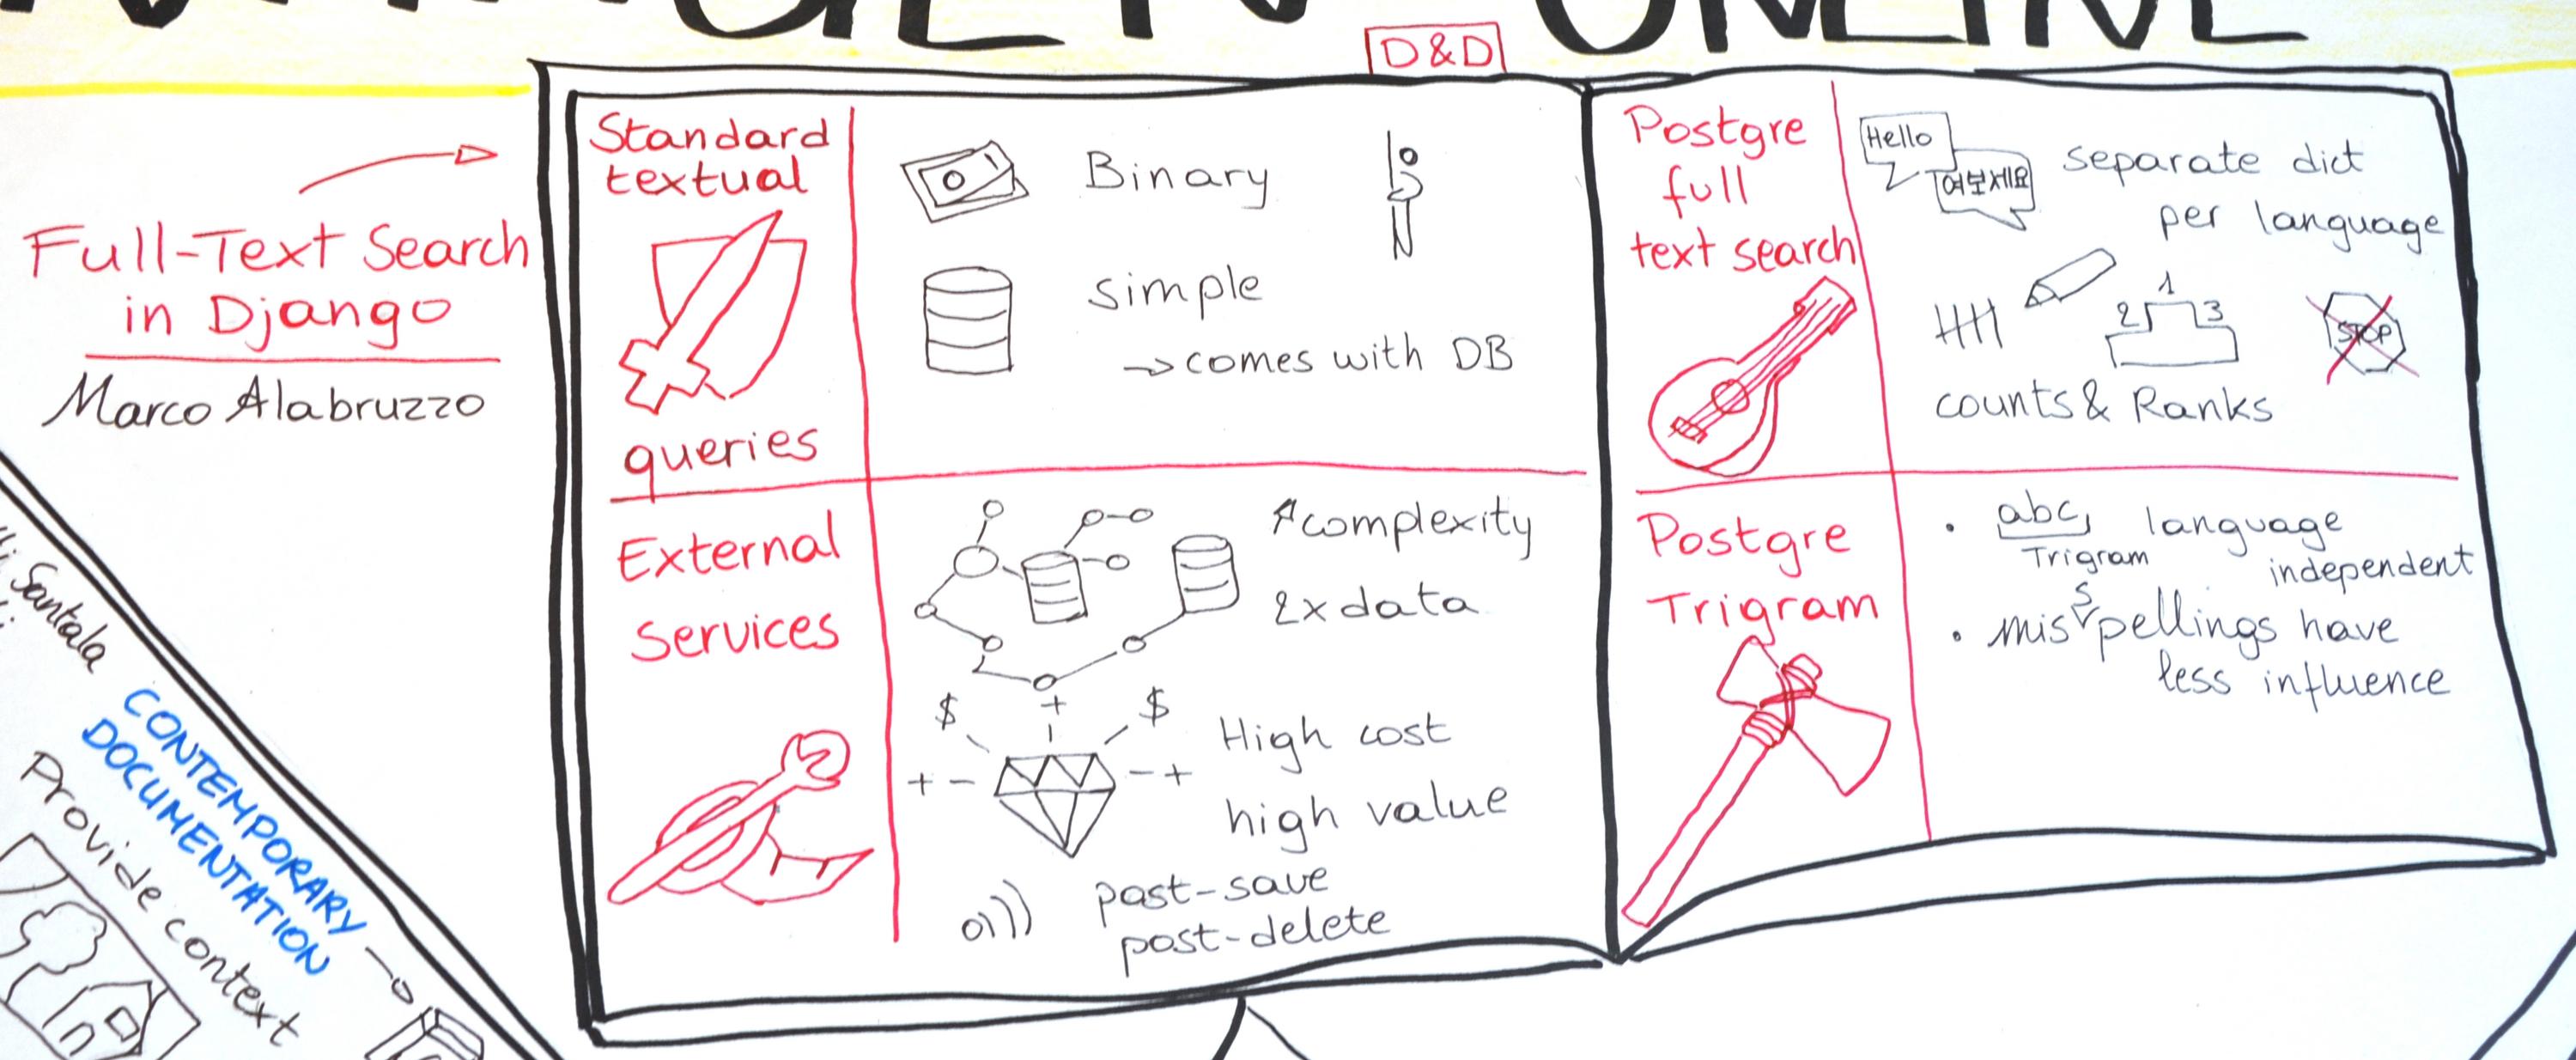 ONLINE
D&D
Full-Text Search
in Django
Marco Alabruzzo
Standard
textual
queries
Binary
simple
→ comes with DB
External
Services
↑complexity
2x data
$ + $
+ - - +
High cost
high value
post-save
post-delete
Postgre
full
text search
Hello
여보세요
separate dict
per language
1
2 3
STOP
counts & Ranks
Postgre
Trigram
• abc, language
Trigram
independent
s
• mispellings have
less influence
Santala
CONTEMPORARY
DOCUMENTATION
Provide context